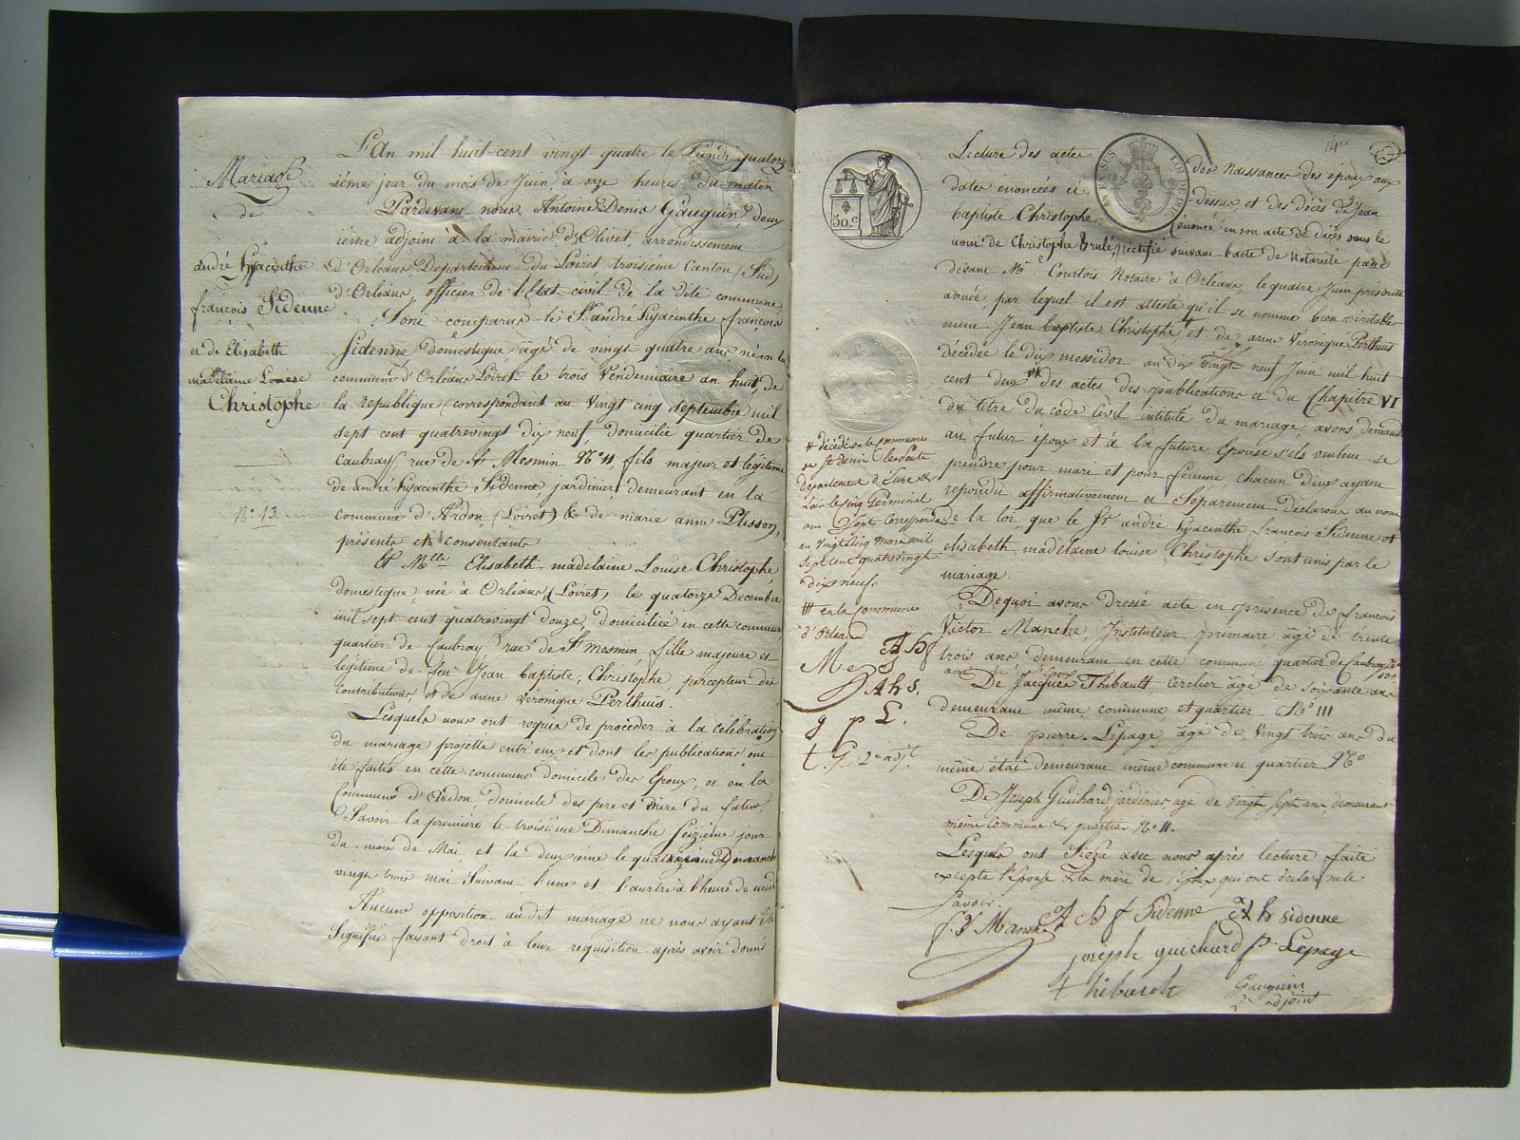 Mariage
de
andré hyacinthe
françois Sidenne
et de Elisabeth
madelaine Louise
Christophe
N.° 13
L'An mil huit cent vingt quatre le Lundi quator
zième jour du mois de Juin, à onze heures du matin
Pardevant nous Antoine Denis Gauguin, deux
ième adjoint à la mairie d'Olivet, arrondissement
d'Orléans Departement du Loiret, troisième Canton (Sud)
d'Orléans, officier de l'Etat civil de la dite commune,
Sont comparus le Sr andré hyacinthe françois
Sidenne, domestique, agé de vingt quatre ans né en la
commune d'Orléans Loiret le trois Vendemiaire an huit, de
la republique (correspondant au vingt cinq septembre mil
sept cent quatrevingt dix neuf, domicilié quartier de
Caubray rue de St Mesmin N.° 11, fils majeur et légitime
de andré hyacinthe Sidenne, jardinier, demeurant en la
commune d'Ardon (Loiret) & de marie anne Plisson,
présente et consentante
Et Melle Elisabeth madelaine Louise Christophe
domestique, née à Orléans (Loiret) le quatorze Décembre
mil sept cent quatrevingt douze, domiciliée en cette commune
quartier de Caubray rue de St Mesmin fille majeure et
légitime de feu Jean baptiste Christophe percepteur des
contributions, et de anne véronique Perthuis.
Lesquels nous ont requis de procéder à la célébration
du mariage projetté entr'eux et dont les publications ont
été faites en cette commune domicile des Epoux, et en la
Commune d'Ardon domicile des pere et mère du futur,
Savoir la première le troisième Dimanche Seizième jour
du mois de Mai, et la deuxième le quatrième Dimanche
vingt trois mai suivant l'une et l'autre à l'heure de midi
Aucune opposition audit mariage ne nous ayant été
Signifiée faisant droit à leur requisition après avoir donné
50.c
Lecture des actes des Naissances des époux aux
dates enoncées ci-dessus, et des décès de Jean
baptiste Christophe (énoncé en son acte de décès sous le
nom de Christophe Brulé, rectifié suivant acte de Notoriété passé
devant Me Courtois Notaire à Orléans, le quatre Juin présente
année, par lequel il est attesté qu'il se nomme bien véritable
ment Jean baptiste Christophe) et de anne Véronique Perthuis
décédée le dix messidor an dix vingt neuf Juin mil huit
cent deux des actes des publications et du Chapitre VI
du titre du code Civil intitulé du mariage, avons demandé
au futur époux et à la future Epouse s'ils veulent se
prendre pour mari et pour femme, chacun d'eux ayant
répondu affirmativement et séparement déclarons au nom
de la loi, que le Sr andré hyacinthe françois Sidenne et
elisabeth madelaine louise Christophe sont unis par le
mariage.
Dequoi avons dressé acte en présence de françois
Victor Manche, Instituteur primaire, agé de trente
trois ans demeurant en cette commune quartier de Caubray
De Jacques Thibault cerclier agé de soixante ans
demeurant même commune et quartier N.° 111
De pierre Lepage agé de Vingt trois ans du
même état demeurant même commune et quartier N.°
De Joseph Guichard jardinier agé de vingt sept ans demeurant
même commune & quartier N.° 11.
Lesquels ont Signé avec nous après lecture faite
excepté l'épouse & la mère de l'époux qui ont déclaré ne le
savoir.
# décédé en la commune
Département d'Eure &
Loir le cinq Germinal
an Sept correspondant
au vingt cinq mars mil
sept cent quatrevingt
dix neuf.
## en la commune
d'Orléans
A h f
A h S.
g p L.
t. G. 2e adjt.
f. V Manche A h f Sidenne A h sidenne
joseph guichard p. Lepage
thibault Gauguin
adjoint